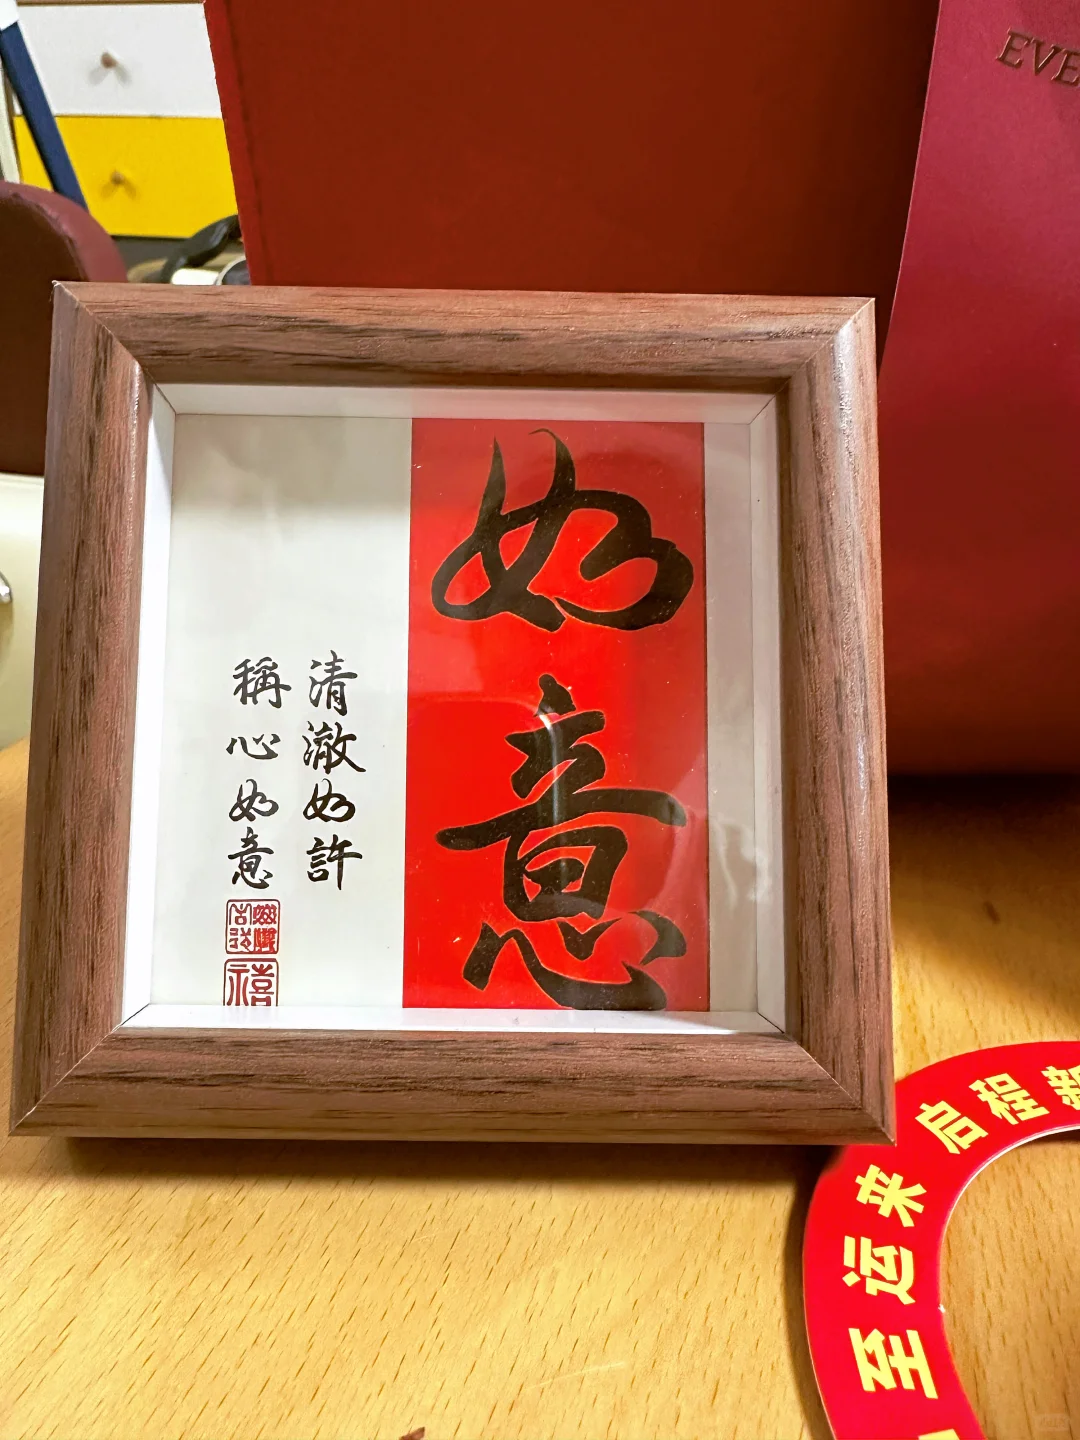 如意
清澈如許
稱心如意
禧
EVE
至运来 启程